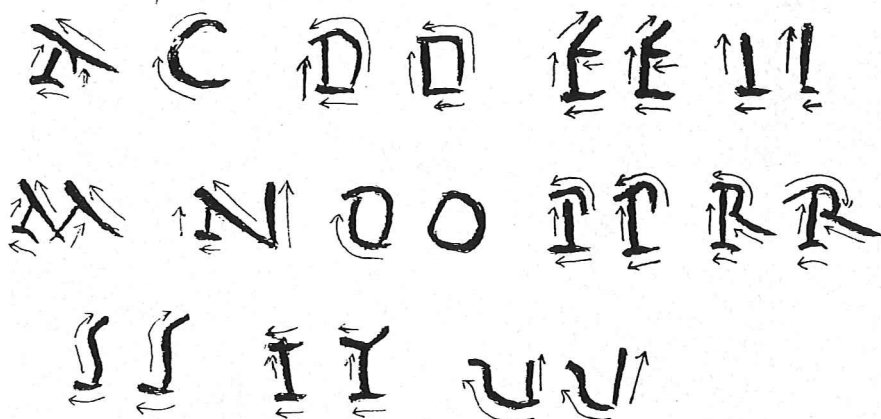 A C D D E E I I
M N O O P P R R
S S T T U U